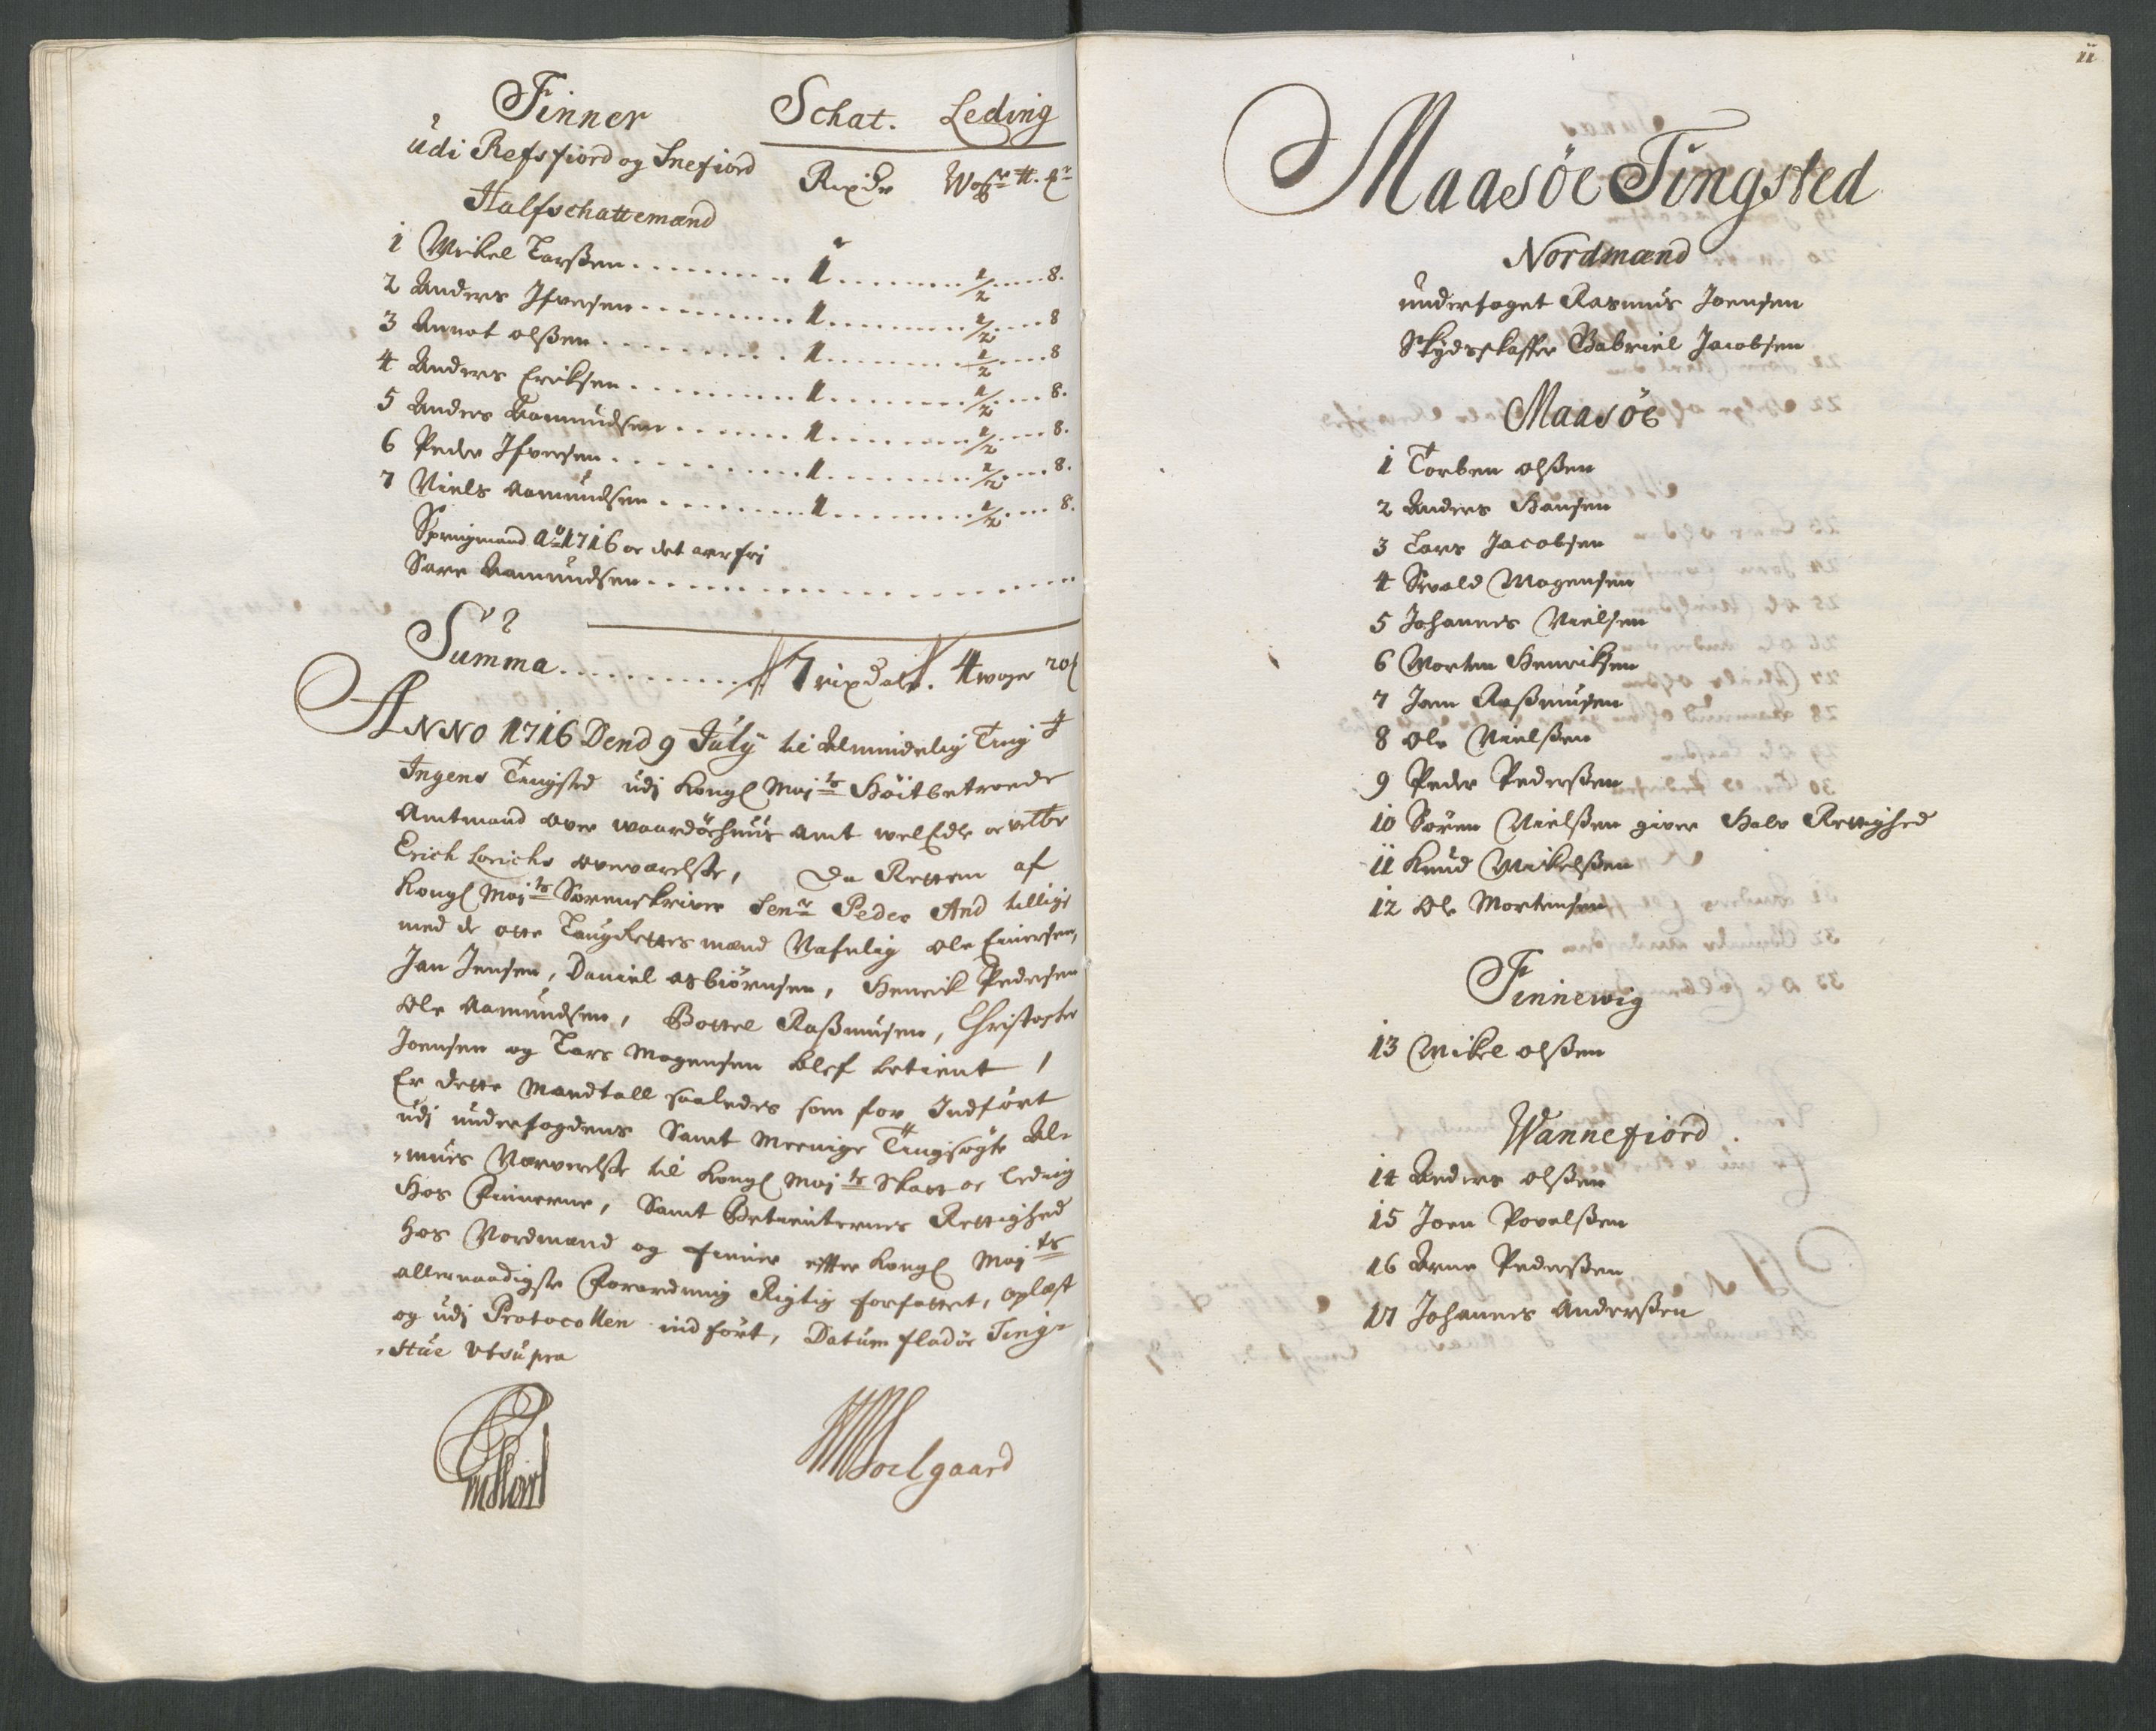 Finner Schat. Leding
udi Refsfiord og Snefiord Rixdr Woger ℔. 
Halfschattemænd
1 Mikel Larßen 1 1/2 8.
2 Anders Ifversen 1 1/2 8
3 Annot olßen 1 1/2 8
4 Anders Eriksen 1 1/2 8.
5 Anders Aamundsen 1 1/2 8.
6 Peder Ifversen 1 1/2 8.
7 Niels Aamundsen 1 1/2 8.
1716 det aar frj
Aamundsen
Summa 7 rixdalr. 4 woger 20
ANNO 1716 Dend 9 July til Almindelig Ting
Ingens Tingsted udj Kongl Maj ts Höitbetroede
Amtmand over waardöehuus Amt welEdle
Erich Lorichs overværelse, Da Retten af
Kongl Maj ts Sorenskriver Senr Peder And tillige
med de otte Laugrettes mænd Nafnlig Ole Einersen,
Jan Jensen, Daniel asbiörnsen, Henrik Pedersen
Ole Aamundsen, Bottel Raßmusen, Christopher
Joensen og Lars Mogensen blef betient /
Er dette Mandtall saaledes som for Indfört
udj underfogdens Samt Meenige Tingsögte Al-
-mues Nærverelse til Kongl Maj ts Skatt oc leding
Hos Finnerne, Samt Betienternes Rettighed
hos Nordmænd og finner efter Kongl Maj ts
allernaadigste Forordning Rigtig forfattet, oplæst
og udj Protocollen indfört, Datum fladöe Ting-
-stue Utsupra
Soelgaard
11
Maasöe Tingsted
Nordmænd
underfoget Rasmus Joensen
Skydsskaffer Gabriel Jacobsen
Maasöe
1 Torben olßen
2 Anders Hansen
3 Lars Jacobsen
4 Sivald Mogensen
5 Johannes Nielsen
6 Morten Henriksen
7 Jann Raßmusen
8 Ole Nielßen
9 Peder Pederßen
10 Sören Nielßen giver Halv Rettighed
11 Knud Mikelßen
12 Ole Mortensen
Finnewig
13 Mikel olßen
Wannefiord
14 Anders olßen
15 Joen Povelßen
16 Arne Pederßen
17 Johannes Anderßen